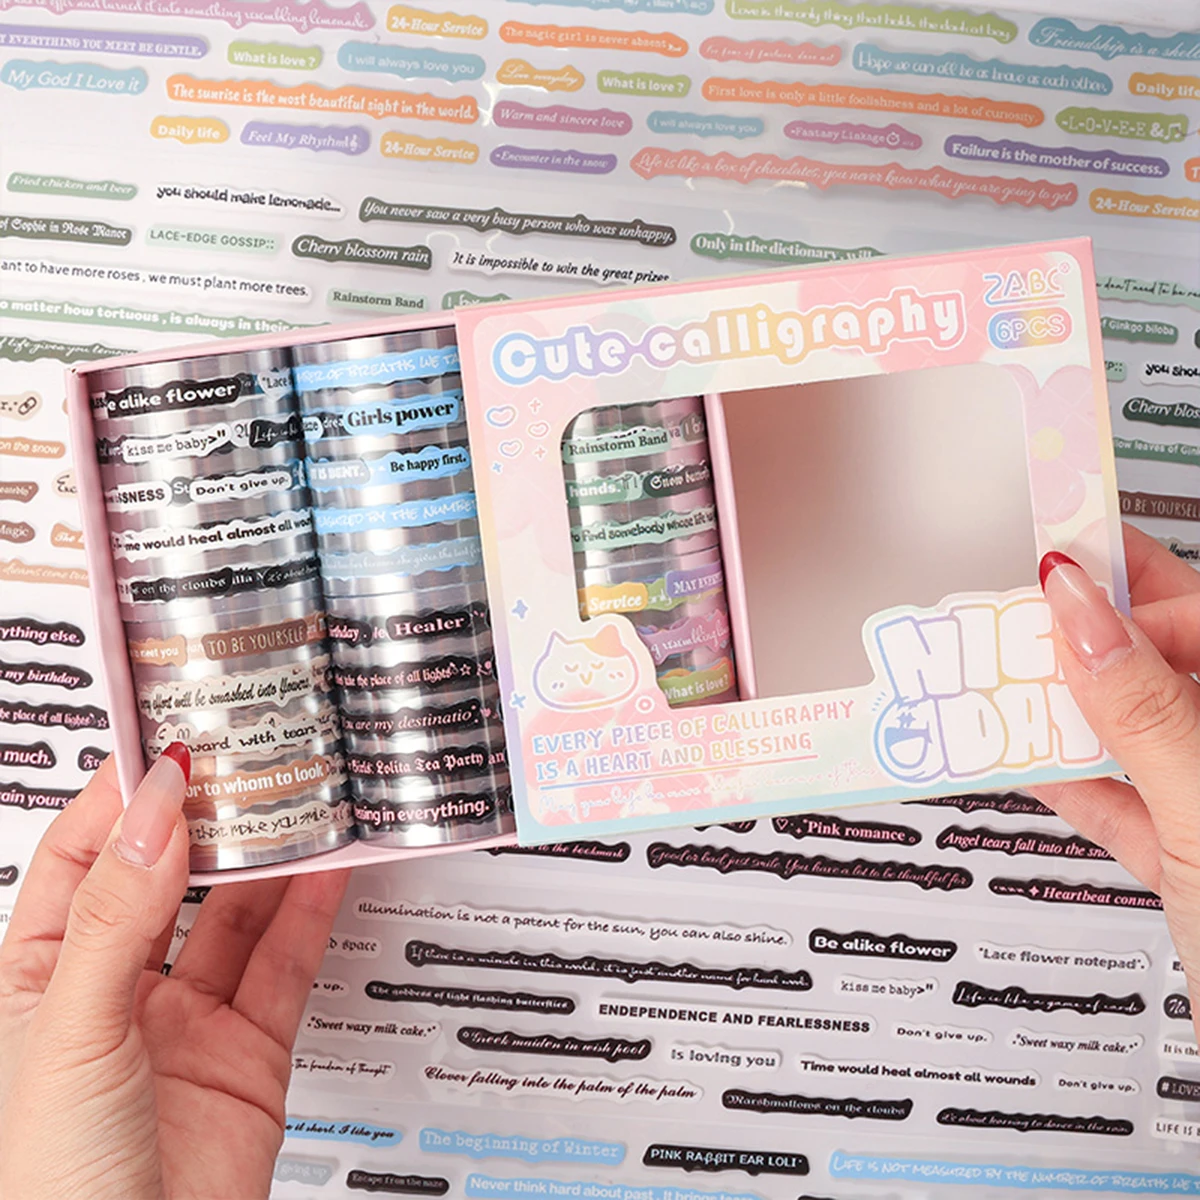 and turned it into something resembling lemonade.
24-Hour Service
Love is the only thing that holds the
Friendship is a
EVERYTHING YOU MEET BE GENTLE.
What is love ?
I will always love you
The magic girl is never absent
Hope we can all be as brave as each other.
My God I Love it
The sunrise is the most beautiful sight in the world.
Love everyday
What is love ?
First love is only a little foolishness and a lot of curiosity.
Daily life
Daily life
Feel My Rhythm
24-Hour Service
Warm and sincere love
I will always love you
•Fantasy Linkage
•L-O-V-E-E &
•Encounter in the snow
Life is like a box of chocolates, you never know what you are going to get
Failure is the mother of success.
24-Hour Service
Fried chicken and beer
you should make lemonade...
You never saw a very busy person who was unhappy.
of Sophie in Rose Manor
LACE-EDGE GOSSIP::
Cherry blossom rain
It is impossible to win the great prizes
Only in the dictionary, will
ant to have more roses , we must plant more trees.
Rainstorm Band
o matter how tortuous , is always in their
of Ginkgo biloba
you shou
Cherry blos
llow leaves of Gink
TO BE YOURSELF
2ABC
6PCS
Cute calligraphy
e alike flower
"Lace
kiss me baby>"
SSNESS
Don't give up.
me would heal almost all wou
on the clouds
TO BE YOURSELF
effort will be smashed into flowers
ward with tears
or to whom to look
that make you smile
BER OF BREATHS WE TA
Girls power
IS BENT.
Be happy first.
ASURED BY THE NUMBER
Healer
the place of all lights
are my destinatio
Girls Lolita Tea Party an
essing in everything.
Rainstorm Band
hands.
Snow
o Find somebody whose
Service
MAY EVERY
What is love ?
EVERY PIECE OF CALLIGRAPHY
IS A HEART AND BLESSING
NICE
DAY
on the snow
Magic
dreams come
ything else.
my birthday .
he place of all lights
much.
tain yourse
"Pink romance
Angel tears fall into the sno
to the bookmark
Good or bad just smile. You have a lot to be thankful for
Heartbeat connect
Illumination is not a patent for the sun, you can also shine.
Be alike flower
"Lace flower notepad".
d space
If there is a miracle in this world, it is just another name for hard work.
kiss me baby>"
Life is like a game of cards
e up.
The goddess of light flashing butterflies
ENDEPENDENCE AND FEARLESSNESS
Don't give up.
•"Sweet waxy milk cake.•"
•"Sweet waxy milk cake.•"
Greek maiden in wish pool
is loving you
Time would heal almost all wounds
Don't give up.
It is the
# LOVE
The freedom of thought
Clover falling into the palm of the palm
Marshmallows on the clouds
it's about learning to dance in the rain
LIFE IS B
it short. I like you
The beginning of Winter
PINK RAββIT EAR LOLI
LIFE IS NOT MEASURED BY THE NUMBER OF BREATHS WE
giving up
Escape from the maze
Never think hard about past . It brings tears